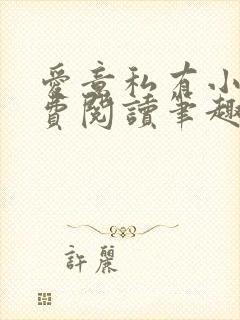 愛意私有小
費閱讀筆趣
許麗